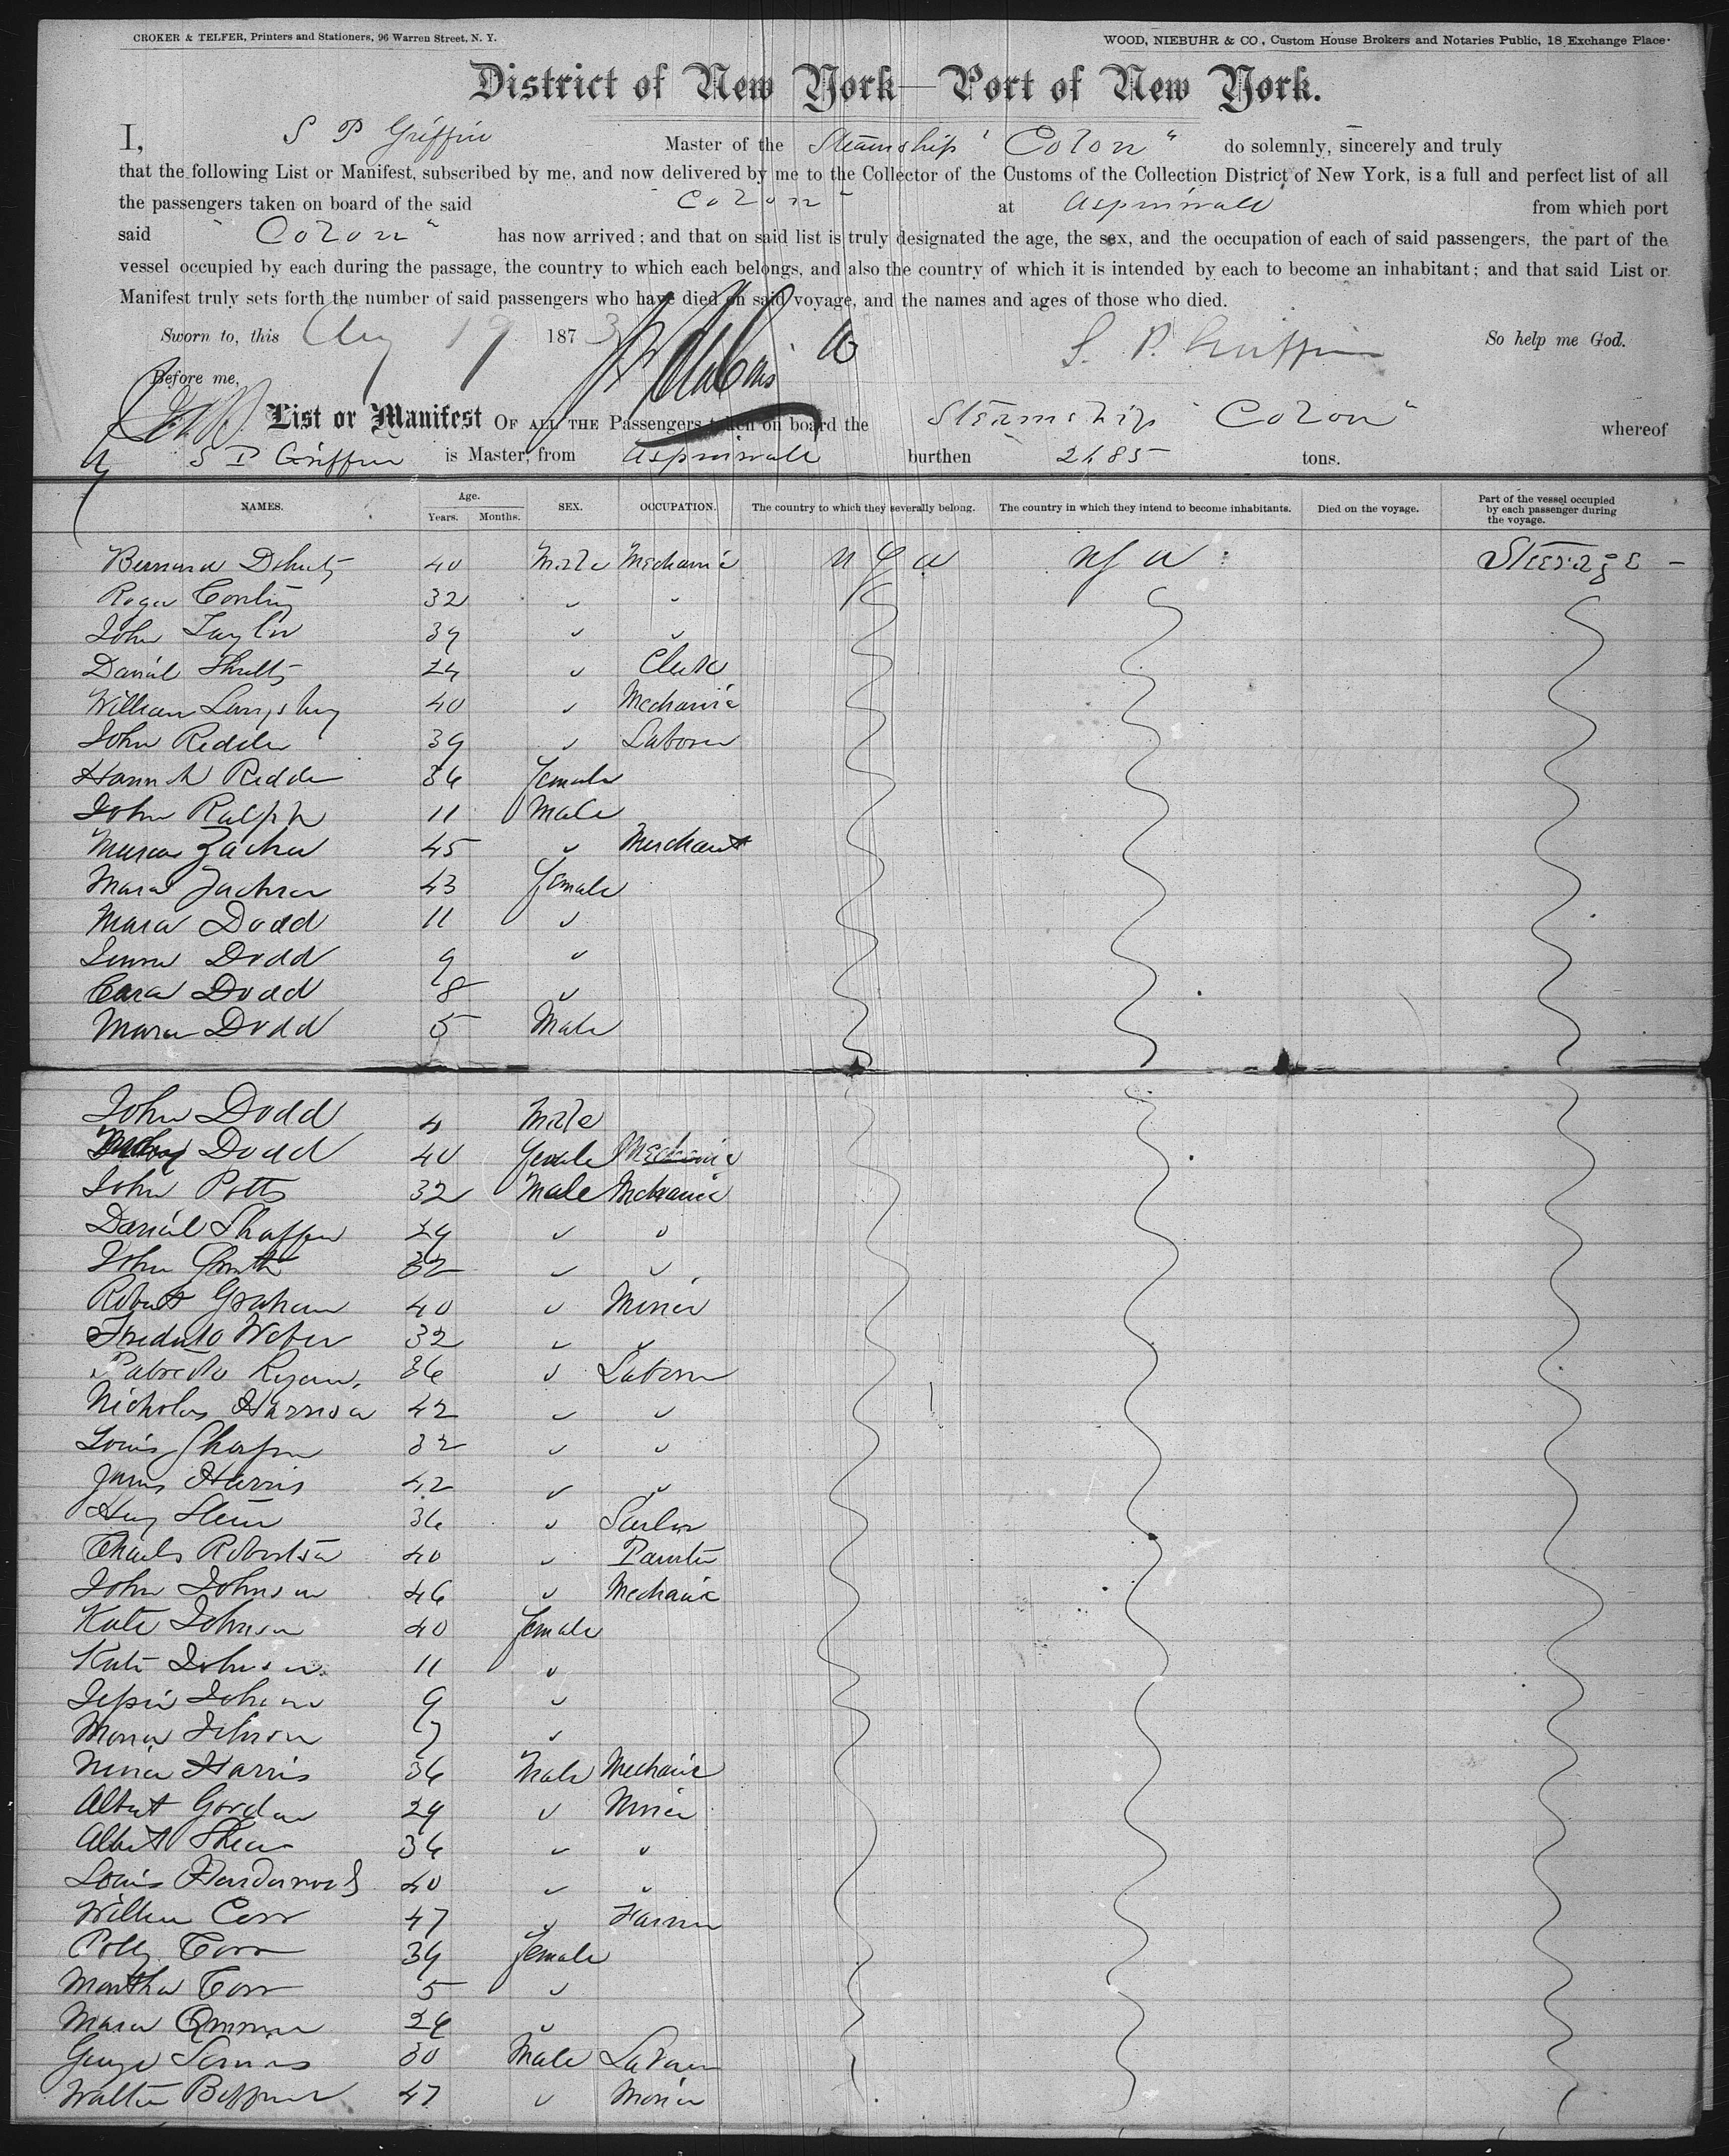 CROKER & TELFER, Printers and Stationers, 96 Warren Street, N. Y.
WOOD, NIEBUHR & CO., Custom House Brokers and Notaries Public, 18 Exchange Place.
District of New York—Port of New York.
I, S P Griffin Master of the Steamship "Colon" do solemnly, sincerely and truly
that the following List or Manifest, subscribed by me, and now delivered by me to the Collector of the Customs of the Collection District of New York, is a full and perfect list of all
the passengers taken on board of the said "Colon" at Aspinwall from which port
said "Colon" has now arrived; and that on said list is truly designated the age, the sex, and the occupation of each of said passengers, the part of the
vessel occupied by each during the passage, the country to which each belongs, and also the country of which it is intended by each to become an inhabitant; and that said List or
Manifest truly sets forth the number of said passengers who have died on said voyage, and the names and ages of those who died.
Sworn to, this Aug 19 1873 S. P. Griffin So help me God.
Before me,
List or Manifest OF ALL THE Passengers taken on board the Steamship "Colon" whereof
S P Griffin is Master, from Aspinwall burthen 2485 tons.
NAMES. Age. Years. Months. SEX. OCCUPATION. The country to which they severally belong. The country in which they intend to become inhabitants. Died on the voyage. Part of the vessel occupied by each passenger during the voyage.
40 Male Mechanic Steerage
Roger 32 " "
John Taylor 39 " "
Daniel 24 " Clerk
William 40 " Mechanic
John Redder 39 " Laborer
Hannah Redder 36 Female
John Ralph 11 Male
Marcus Zacher 45 " Merchant
43 Female
Mara Dodd 11 "
Dodd 9 "
Cara Dodd 8 "
Dodd 5 Male
John Dodd 4 Male
Dodd 40 Female Mechanic
John Potts 32 Male Mechanic
Daniel Shaffer 29 " "
John 32 " "
Robert Graham 40 " Miner
Weber 32 " "
Patrick Ryan 36 " Laborer
Nicholas Harrison 42 " "
Louis 32 " "
James Harris 42 " "
36 " Sailor
Charles Robertson 40 " Painter
John Johnson 46 " Mechanic
Kate Johnson 40 Female
Kate Johnson 11 "
Johnson 9 "
Johnson 7 "
Harris 36 Male Mechanic
Albert Gordon 29 " Miner
Albert 36 " "
Louis 40 " "
Corr 47 " Farmer
Polly Corr 39 Female
Martha Corr 5 "
"
George 30 Male Laborer
Walter 47 " Miner